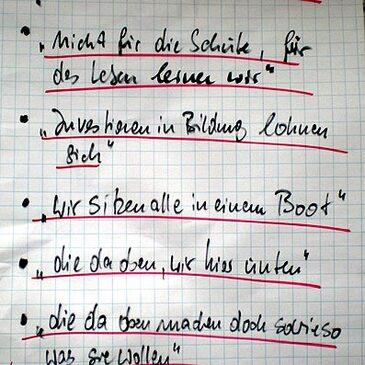 • „Nicht für die Schule, für
das Leben lernen wir"
• „Investieren in Bildung lohnen
sich"
• „wir sitzen alle in einem Boot"
• „die da oben, wir hier unten"
• „die da oben machen doch sowieso
was sie wollen"